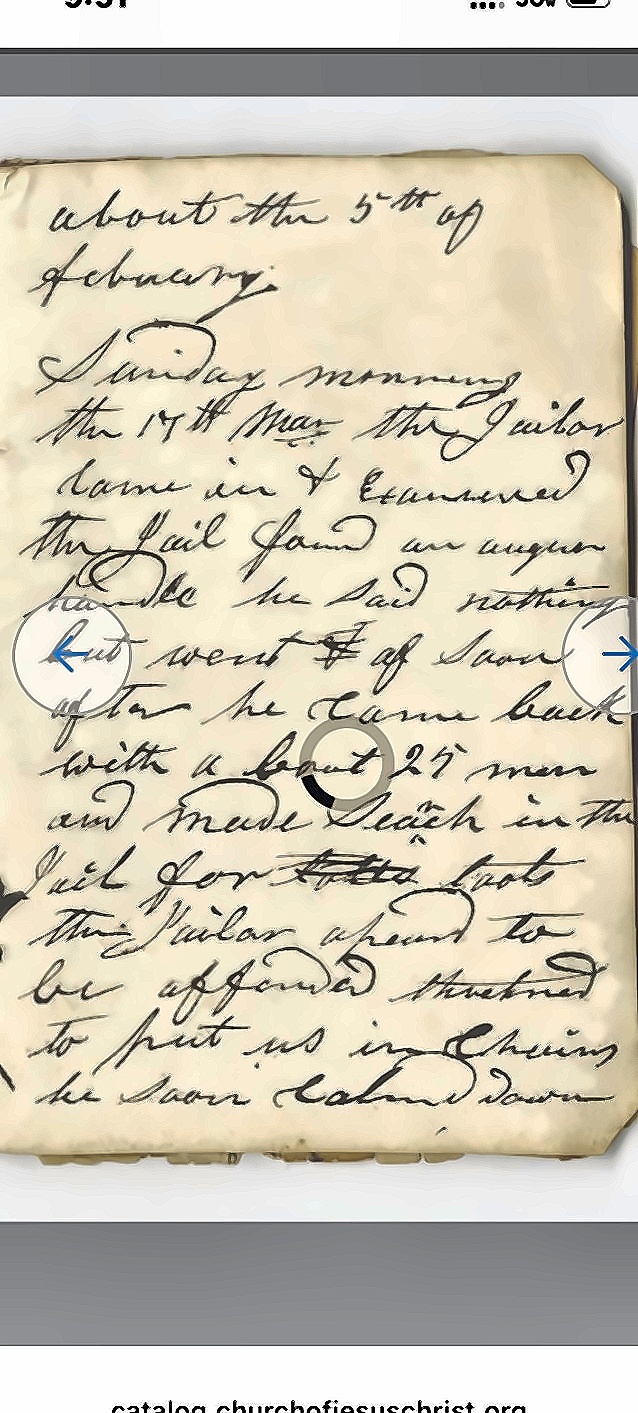 about the 5th of
febuary.
Sunday morning
the 17th Mar the Jailor
came in & Examened
the Jail found an auguer
handle he said nothing
but went & of soon
after he came back
with a bout 25 men
and made Seach in the
Jail for tools
the Jailor apeard to
be affended thretned
to put us in Chains
he soon calmd down
catalog.churchofjesuschrist.org